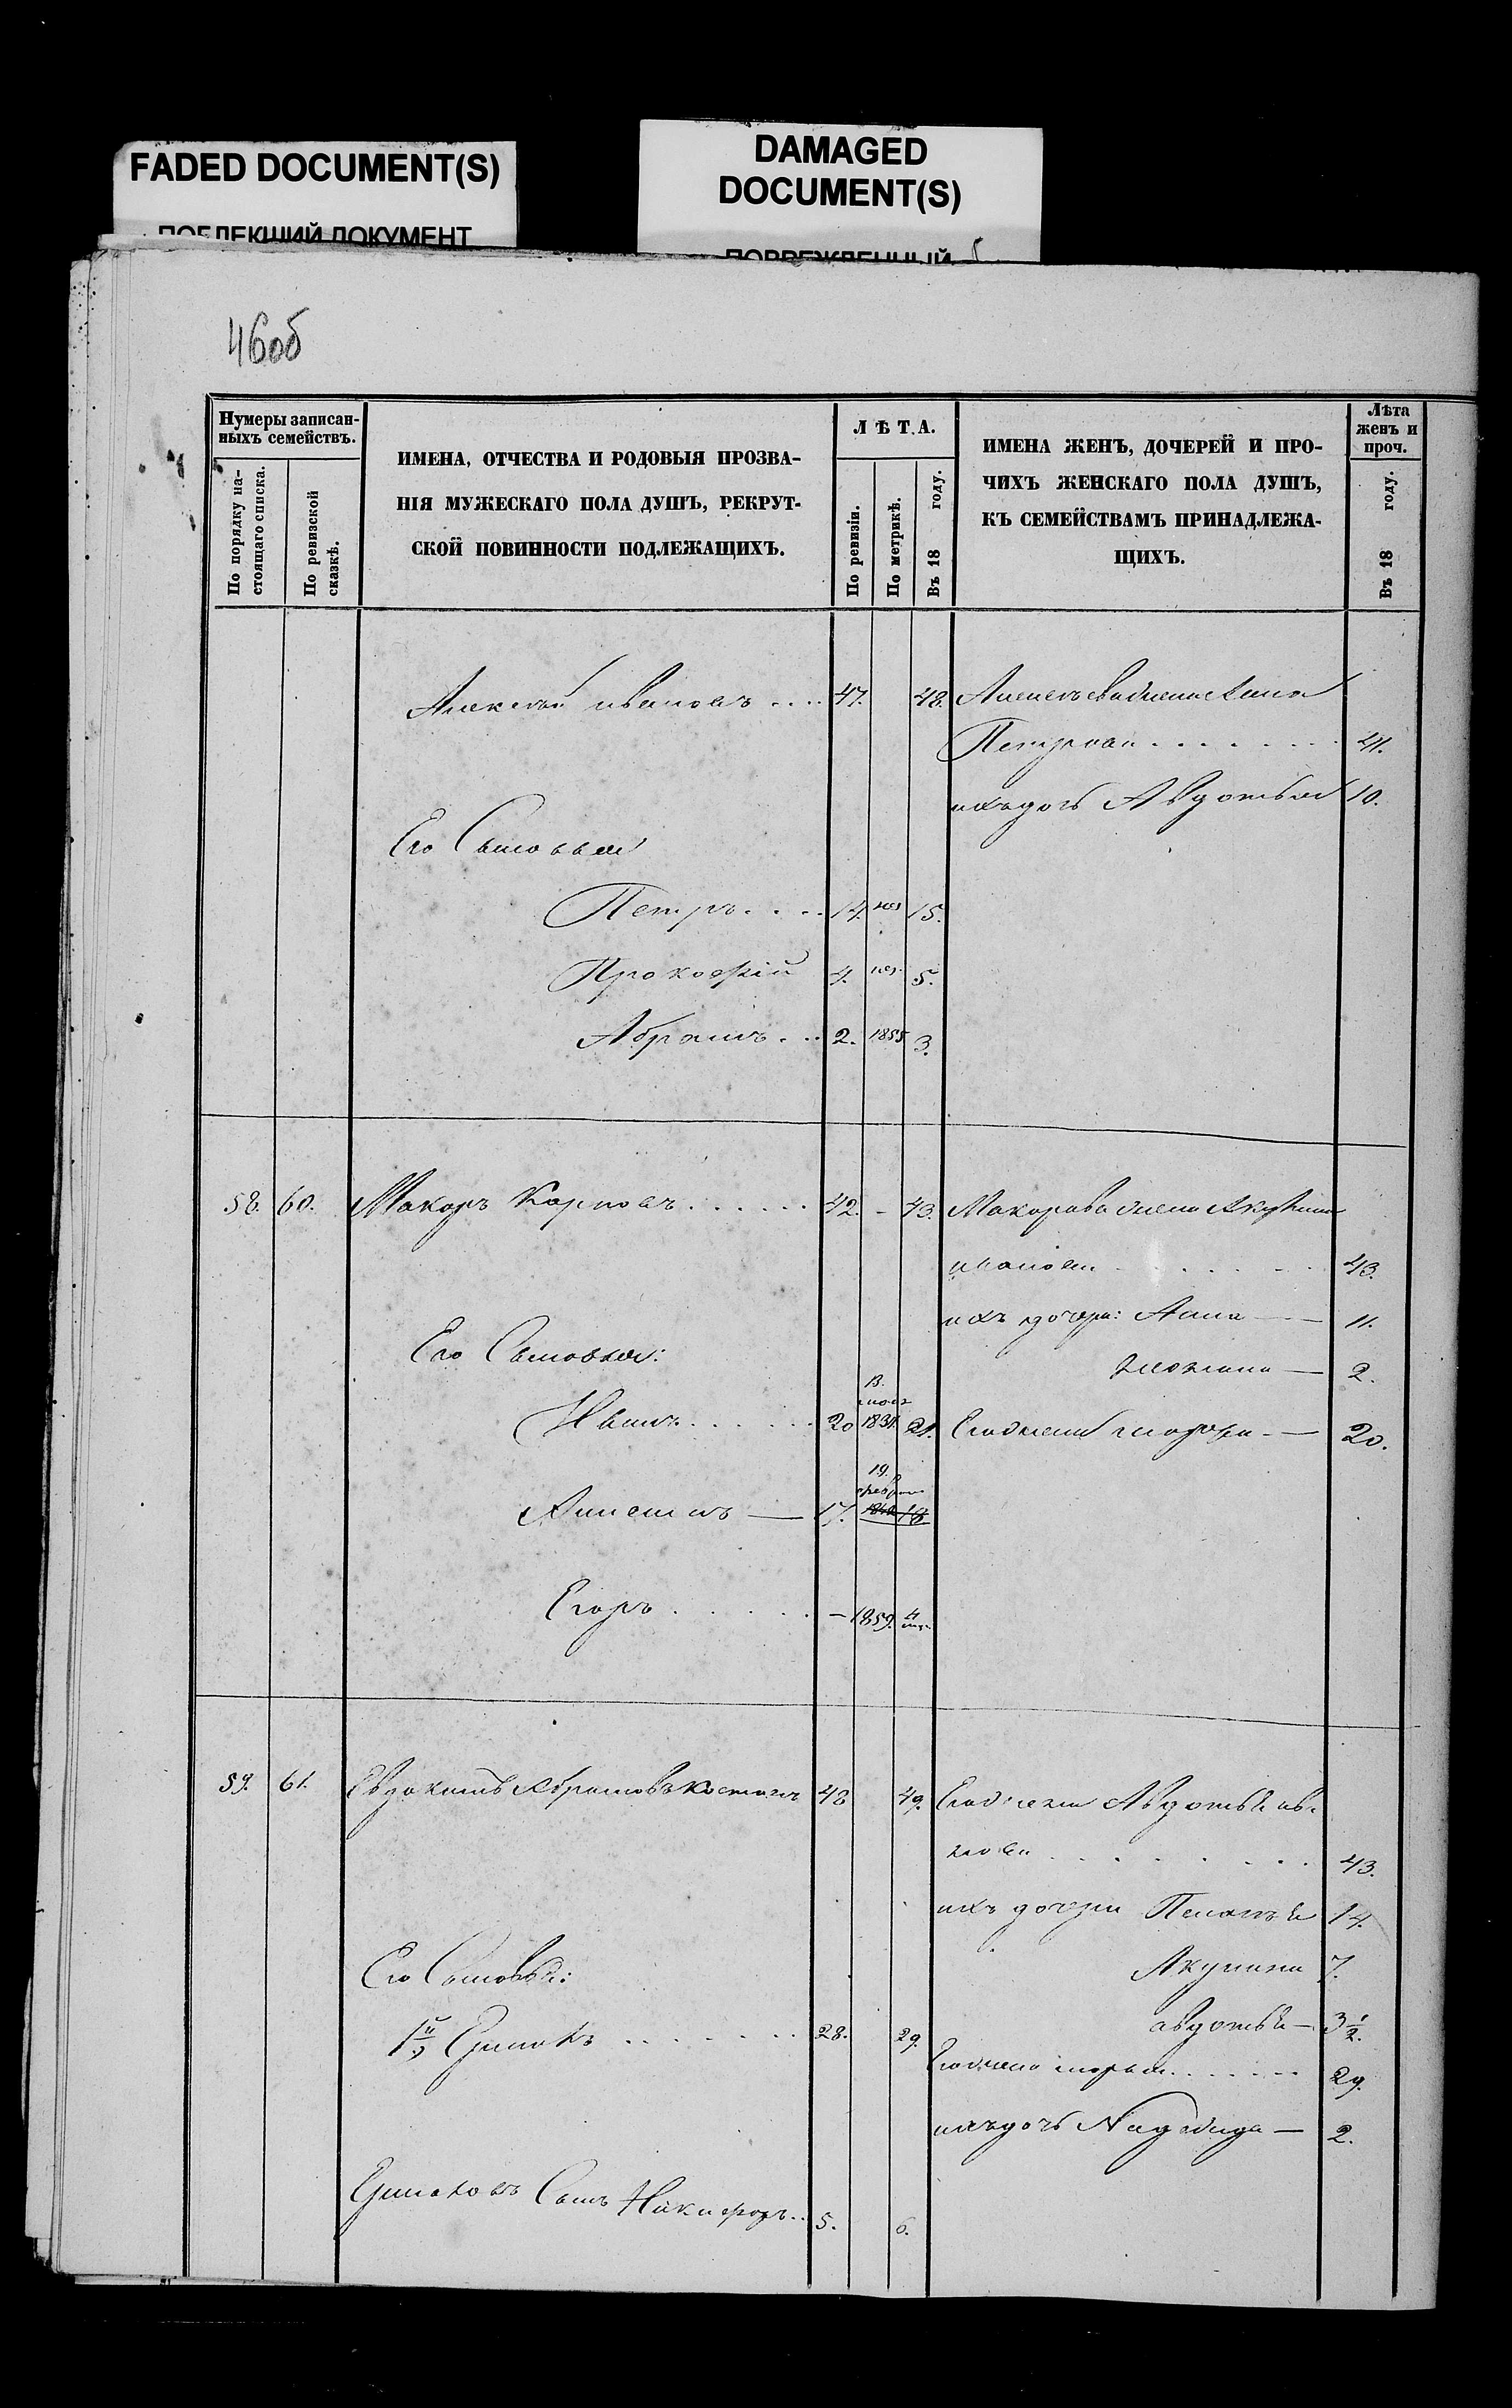 FADED DOCUMENT(S)
ПОБЛЕКШИЙ ДОКУМЕНТ
DAMAGED
DOCUMENT(S)
ПОВРЕЖДЕННЫЙ
46об
Нумеры записан-
ныхъ семействъ.
По порядку на-
стоящаго списка.
По ревизской
сказкѣ.
ИМЕНА, ОТЧЕСТВА И РОДОВЫЯ ПРОЗВА-
НІЯ МУЖЕСКАГО ПОЛА ДУШЪ, РЕКРУТ-
СКОЙ ПОВИННОСТИ ПОДЛЕЖАЩИХЪ.
ЛѢТА.
По ревизіи.
По метрикѣ.
Въ 18 году.
ИМЕНА ЖЕНЪ, ДОЧЕРЕЙ И ПРО-
ЧИХЪ ЖЕНСКАГО ПОЛА ДУШЪ,
КЪ СЕМЕЙСТВАМЪ ПРИНАДЛЕЖА-
ЩИХЪ.
Лѣта
женъ и
проч.
Въ 18 году.
Алексѣй Ивановъ .... 47. 48. Алексѣева жена Анна
Петрова . . . . . . . 41.
ихъ дочь Авдотья 10.
Его Сыновья
Петръ . . . . 14. 15.
Прокофій 4. 5.
Абрамъ . . . 2. 1855 3.
58. 60. Макаръ Карповъ . . . . . . 42. - 43. Макарова жена
Иванова . . . . . . 43.
ихъ дочери: Анна — 11.
2.
Его Сыновья:
Иванъ . . . . . . 20 13. 21. Его жена — 20.
19.
— 17. 18
Егоръ . . . . . — 1859. 4
59. 61. Евдокимъ Абрамовъ 48 49. Его жена Авдотья
. . . . . . . . 43.
ихъ дочери Пелагѣя 14.
Акулина 7.
Его Сыновья:
Авдотья — 3 1/2.
1й . . . . . . . 28. 29.
Его жена Марья . . . . . . 29.
ихъ дочь Надежда — 2.
Сынъ Никифоръ . . 5. 6.